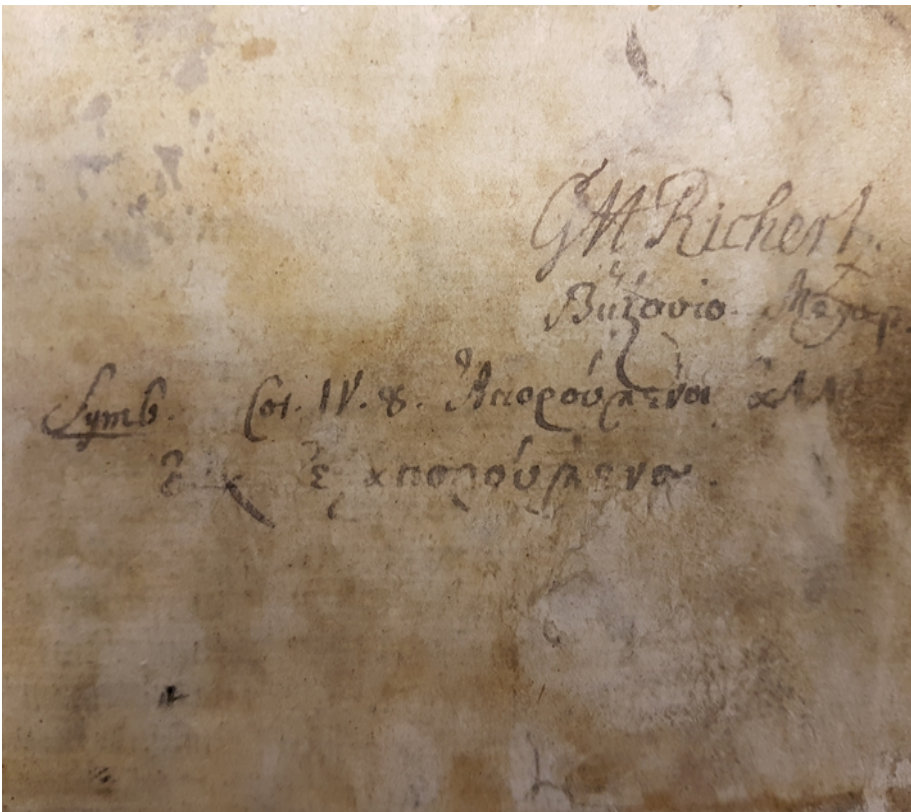 GM Richert.
Symb. Cor. IV. 8. Ἀπορούμενοι ἀλλ
οὐκ ἐξαπορούμενοι.